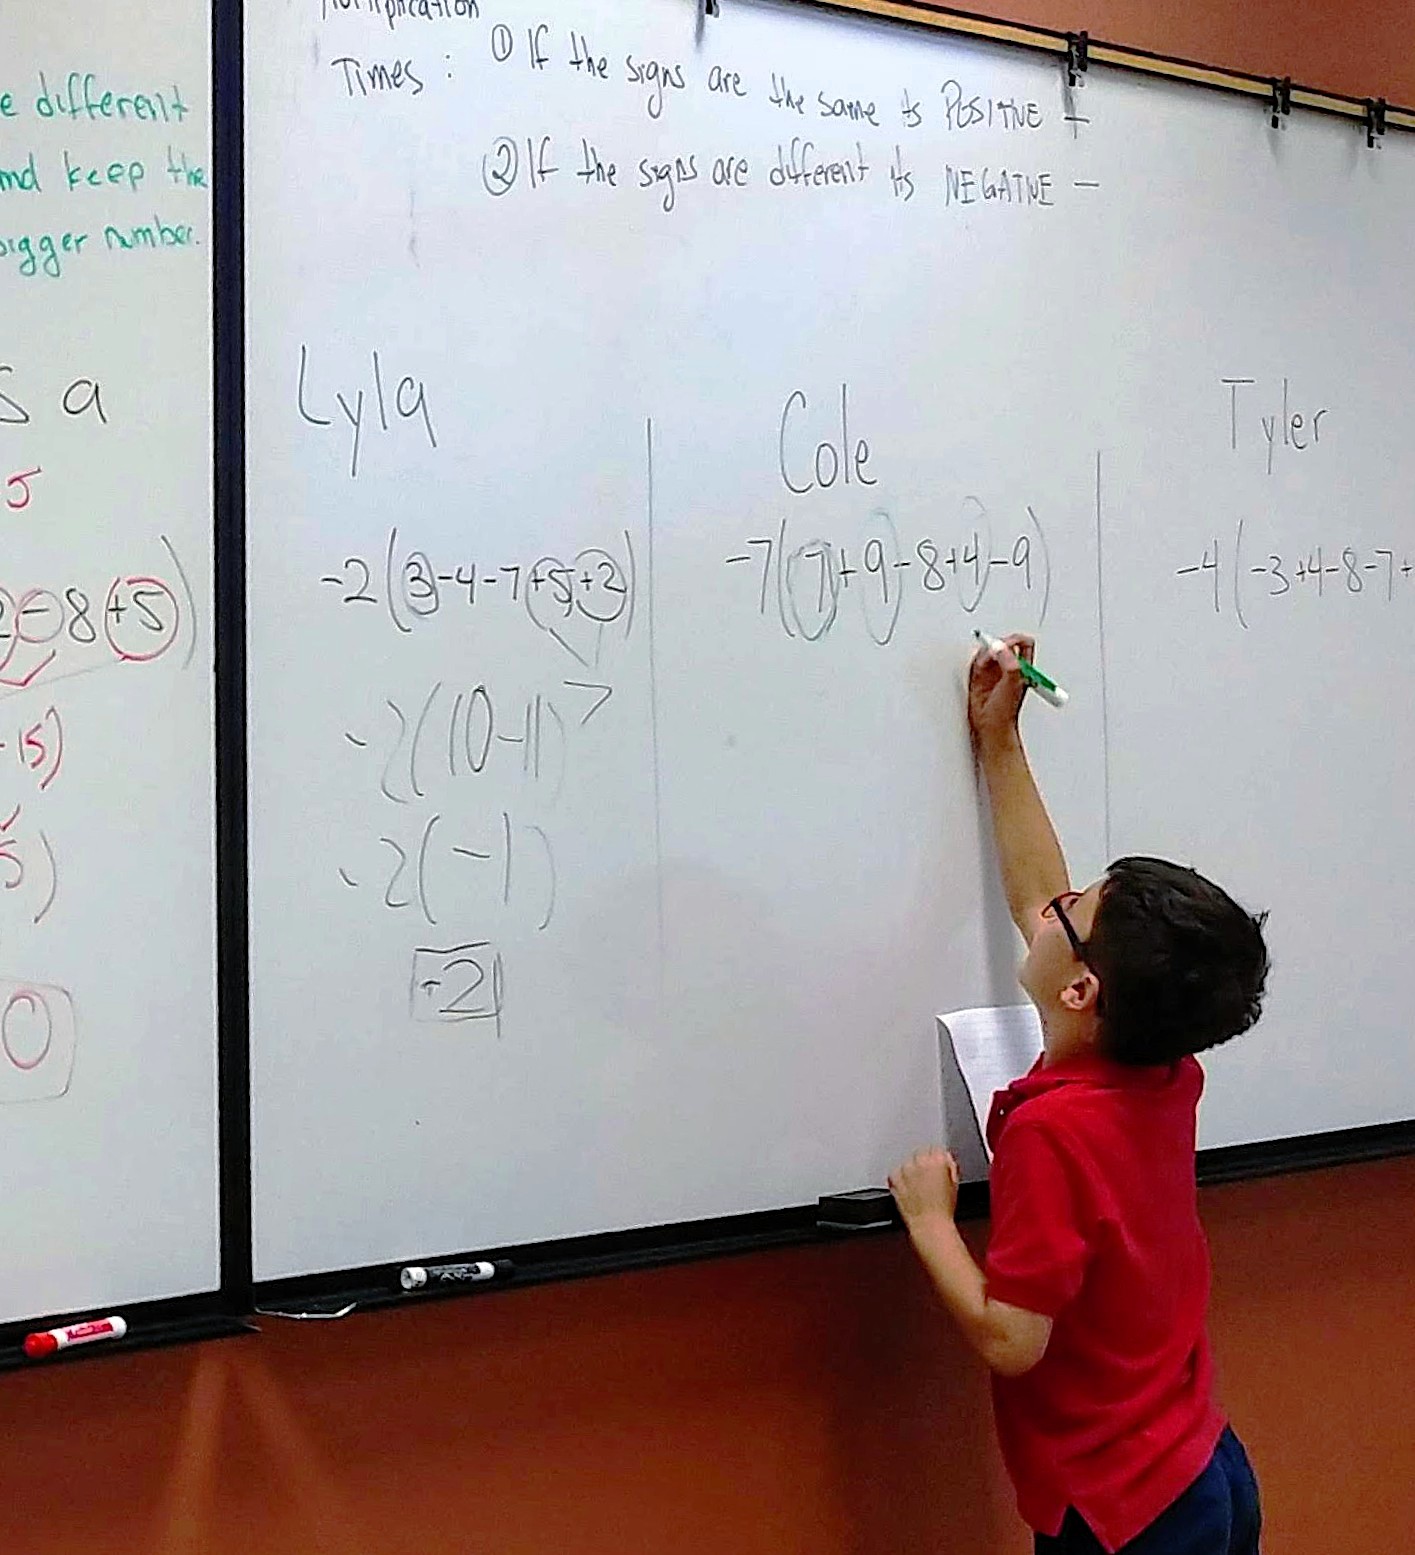 e different
and keep the
bigger number.
s a
5
-8+5)
-15)
5)
0
Multiplication
Times: ① If the signs are the same its POSITIVE +
② If the signs are different its NEGATIVE -
Lyla
-2(3-4-7+5+2)
-2(10-11)
-2(-1)
-2
Cole
-7(7+9-8+4-9)
Tyler
-4(-3+4-8-7+